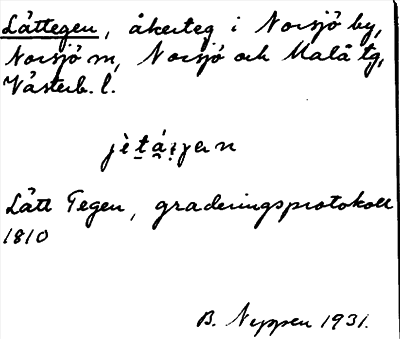 Låttegen, åkerteg i Norsjö by,
Norsjö sn, Norsjö och Malå tg,
Västerb. l.
Lått Tegen, graderingsprotokoll
1810
B. Neppen 1931.